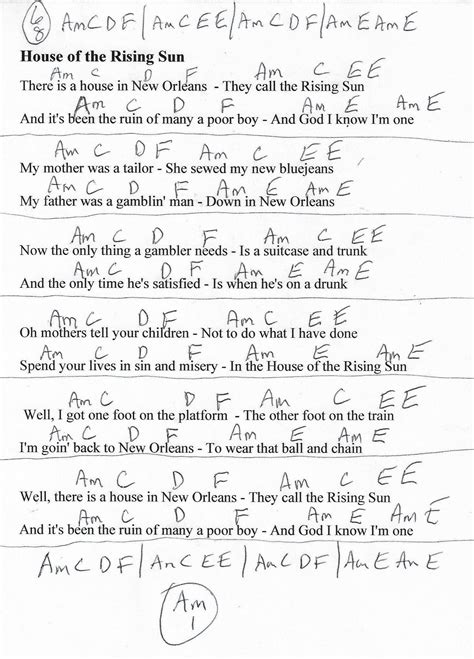 6/8 Am C D F | Am C E E | Am C D F | Am E Am E
House of the Rising Sun
Am C D F Am C E E
There is a house in New Orleans - They call the Rising Sun
Am C D F Am E Am E
And it's been the ruin of many a poor boy - And God I know I'm one
Am C D F Am C E E
My mother was a tailor - She sewed my new bluejeans
Am C D F Am E Am E
My father was a gamblin' man - Down in New Orleans
Am C D F Am C E E
Now the only thing a gambler needs - Is a suitcase and trunk
Am C D F Am E Am E
And the only time he's satisfied - Is when he's on a drunk
Am C D F Am C E E
Oh mothers tell your children - Not to do what I have done
Am C D F Am E Am E
Spend your lives in sin and misery - In the House of the Rising Sun
Am C D F Am C E E
Well, I got one foot on the platform - The other foot on the train
Am C D F Am E Am E
I'm goin' back to New Orleans - To wear that ball and chain
Am C D F Am C E E
Well, there is a house in New Orleans - They call the Rising Sun
Am C D F Am E Am E
And it's been the ruin of many a poor boy - And God I know I'm one
Am C D F | Am C E E | Am C D F | Am E Am E
Am
1